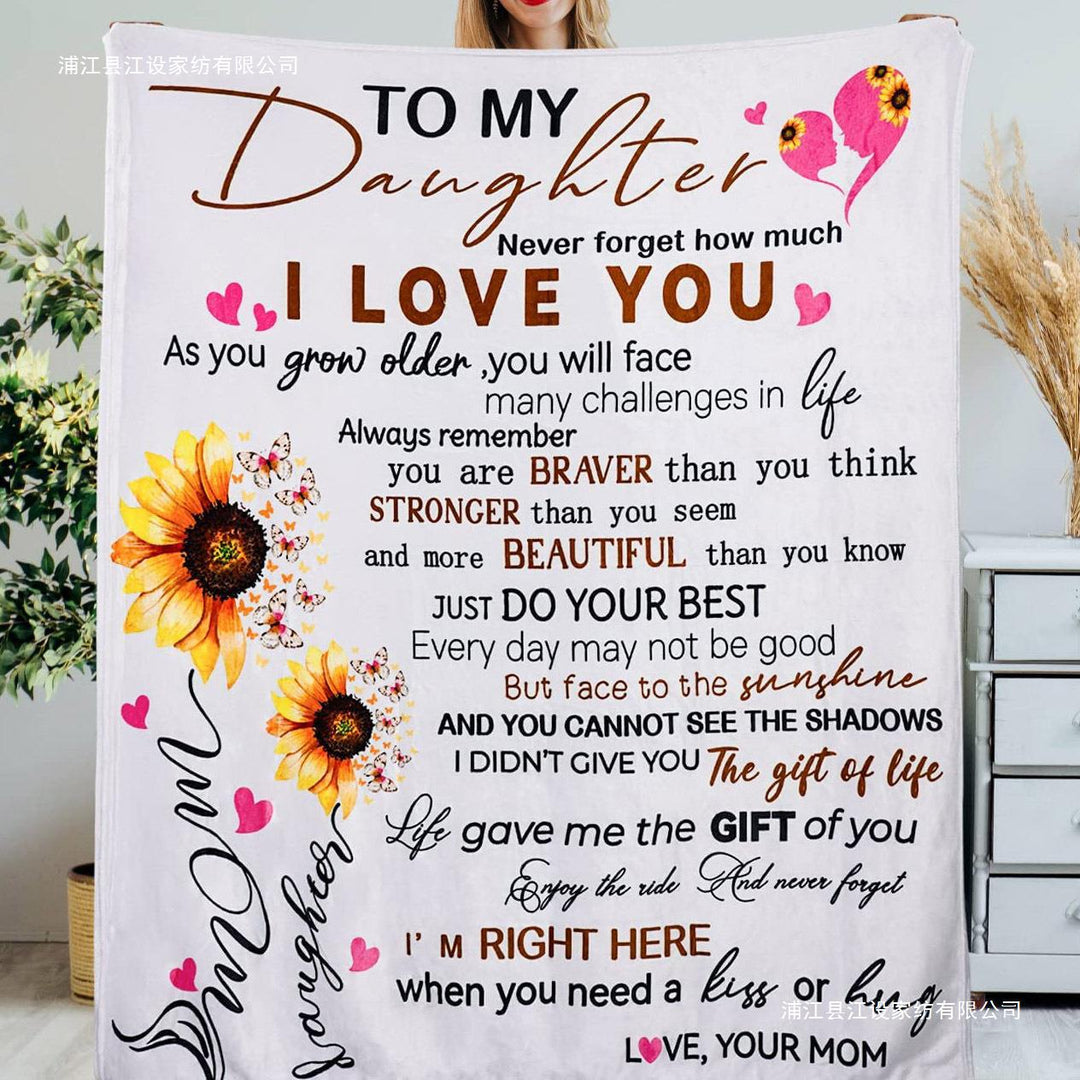 浦江县江设家纺有限公司
TO MY
Daughter
Never forget how much
I LOVE YOU
As you grow older ,you will face
many challenges in life
Always remember
you are BRAVER than you think
STRONGER than you seem
and more BEAUTIFUL than you know
JUST DO YOUR BEST
Every day may not be good
But face to the sunshine
AND YOU CANNOT SEE THE SHADOWS
I DIDN'T GIVE YOU The gift of life
Life gave me the GIFT of you
Enjoy the ride And never forget
I' M RIGHT HERE
when you need a kiss or hug
浦江县江设家纺有限公司
LOVE, YOUR MOM
MOM
Daughter